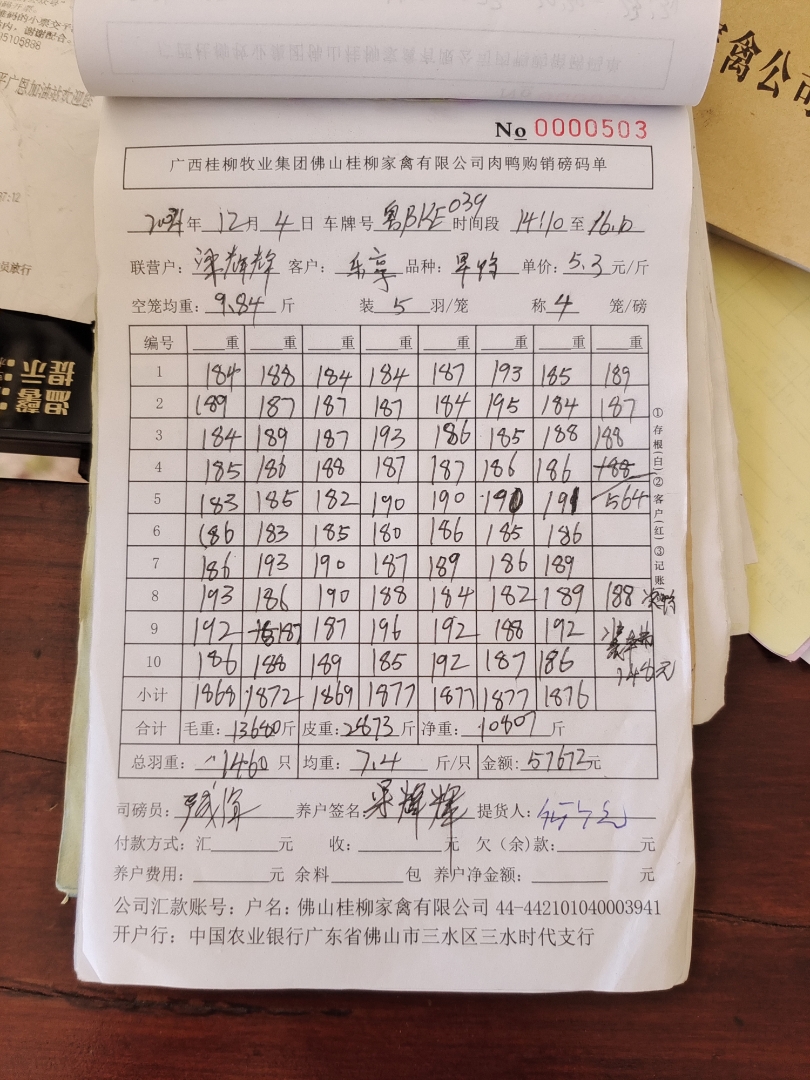 No 0000503
广西桂柳牧业集团佛山桂柳家禽有限公司肉鸭购销磅码单
年 12月 4日 车牌号 粤BKE039 时间段 14:10 至 16:10
联营户: 梁辉辉 客户: 乐享 品种: 单价: 5.3 元/斤
空笼均重: 9.84 斤 装 5 羽/笼 称 4 笼/磅
编号 重 重 重 重 重 重 重 重
1 184 188 184 184 187 193 185 189
2 189 187 187 187 184 195 184 187
3 184 189 187 193 186 185 188 188
4 185 186 188 187 187 186 186 188
5 183 185 182 190 190 190 191 564
6 186 183 185 180 186 185 186
7 186 193 190 187 189 186 189
8 193 186 190 188 184 182 189 188
9 192 187 187 196 192 188 192
10 186 188 189 185 192 187 186
148元
小计 1868 1872 1869 1877 1877 1877 1876
合计 毛重: 13680 斤 皮重: 2873 斤 净重: 10807 斤
总羽重: 1460 只 均重: 7.4 斤/只 金额: 57672元
司磅员: 养户签名: 梁辉辉 提货人:
付款方式: 汇 元 收: 元 欠(余)款: 元
养户费用: 元 余料 包 养户净金额: 元
公司汇款账号: 户名: 佛山桂柳家禽有限公司 44-442101040003941
开户行: 中国农业银行广东省佛山市三水区三水时代支行
①存根(白)②客户(红)③记账
禽公司
温馨提示
5105868